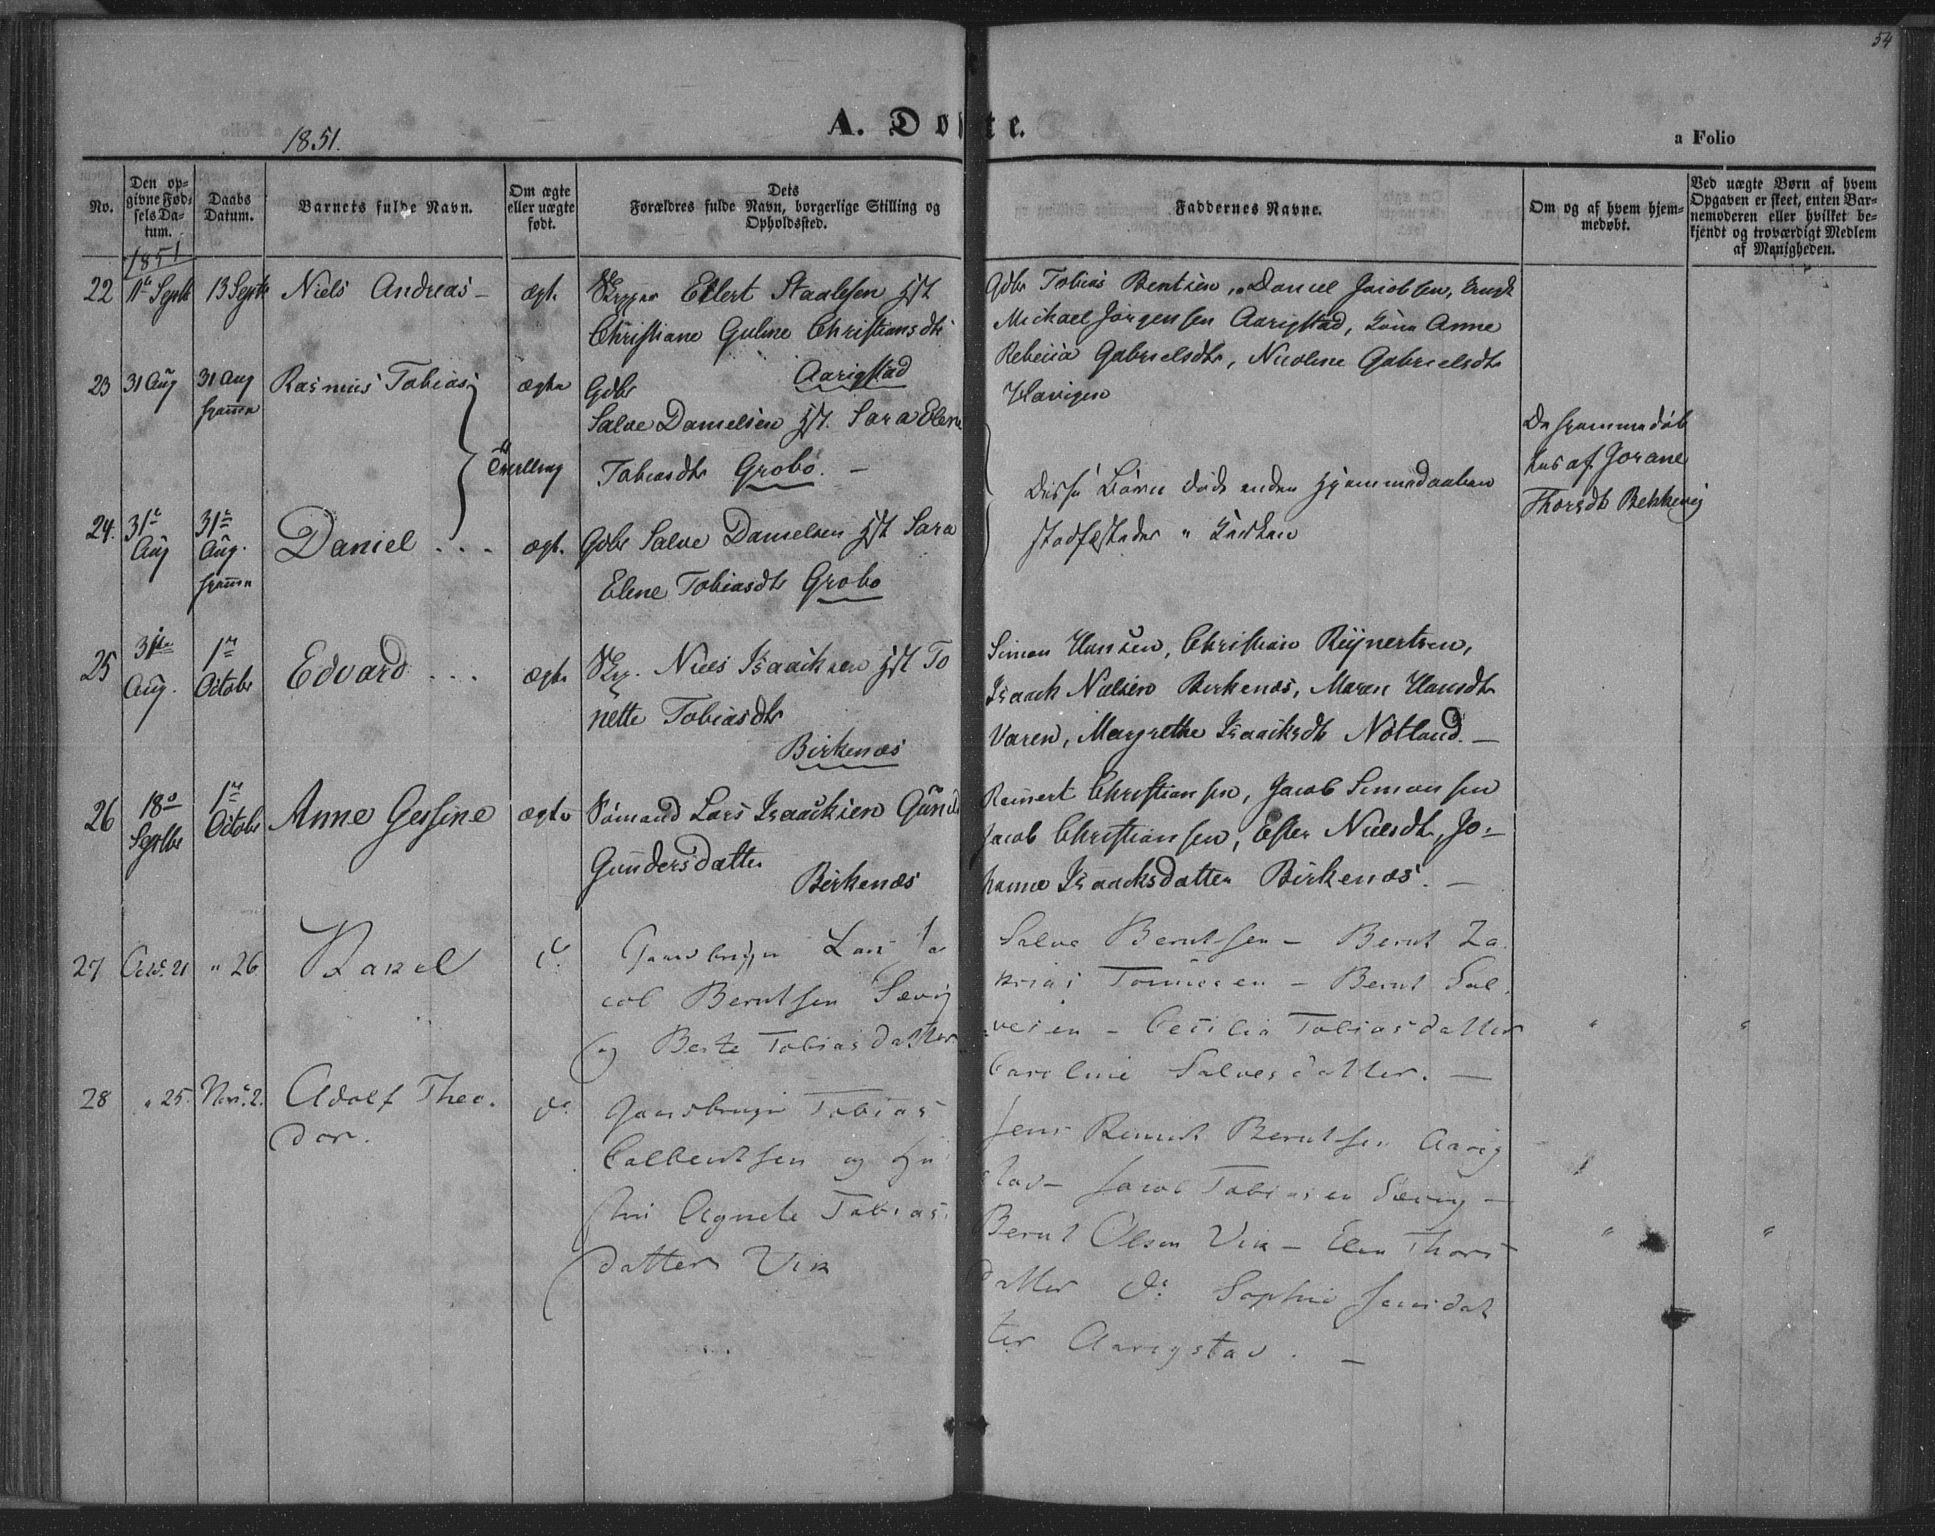 54
1851.
A. Døbte.
a Folio
No.
Den opgivne Fødselsdatum.
Daabs Datum.
Barnets fulde Navn.
Om ægte eller uægte født.
Dets Forældres fulde Navn, borgerlige Stilling og Opholdssted.
Faddernes Navne.
Om og af hvem hjemmedøbt.
Ved uægte Børn af hvem Opgaven er skeet, enten Barnemoderen eller hvilket bekjendt og troværdigt Medlem af Menigheden.
1851
22 11te Septb 13 Septb Niels Andreas – ægte Skipper Ellert Staalesen
Christiane Guline Christiansdtr
Aarigstad
Gdbr Tobias Bentsen, Daniel Jacobsen,
Michael Jørgensen Aarigstad, Anne
Rebecca Gabrielsdtr, Nicoline Gabrielsdtr
23 31 Aug 31 Aug hjemme Rasmus Tobias ægte Gdbr
Salve Danielsen Sara Elene
Tvilling
Tobiasdtr Grobo. –
Disse Børn døde inden hjemmedaaben
stadfæstedes i Kirken
De hjemmedøb
tes af Jorane
Thorsdtr Bekkevig
24. 31te Aug 31te Aug. hjemme Daniel . . . ægte Gdbr Salve Danielsen Sara
Elene Tobiasdtr Grobo
25 31te Aug. 1ste Octobr Edvard . . . ægte Skp. Niels Isaacksen To
nette Tobiasdtr
Birkenæs
Simon Hansen, Christian Reynertsen,
Isaack Nielsen Birkenæs, Maren Hansdtr
Varen, Margrethe Isaacksdtr Nøtland. –
26 18de Septbr 1ste Octobr Anne Gessine ægte Sømand Lars Isaacksen
Gundersdatter
Birkenæs
Reinert Christiansen, Jacob Simonsen
Jacob Christiansen, Ester Nielsdtr, Jo-
hanne Isaacksdatter Birkenæs. –
27 " 26 Rakel do Gaardbruger Lars Ja
cob Berntsen Sævig
og Berte Tobiasdatter
Salve Berntsen – Bernt Za
krias Tønnesen – Bernt Sal
vesen – Cecilia Tobiasdatter
Caroline Salvesdatter. –
28 " 25. Nov. 2. Adolf Theo.
dor. do Gaardbruger Tobias
Colbentsen og
Agnete Tobias
datter Vik
Jens Berntsen Aarig
stad – Jacob Tobiasen Sævig –
Bernt Olsen Vik – Elen Thors
datter do Sophie Jensdat
ter Aarigstad. –